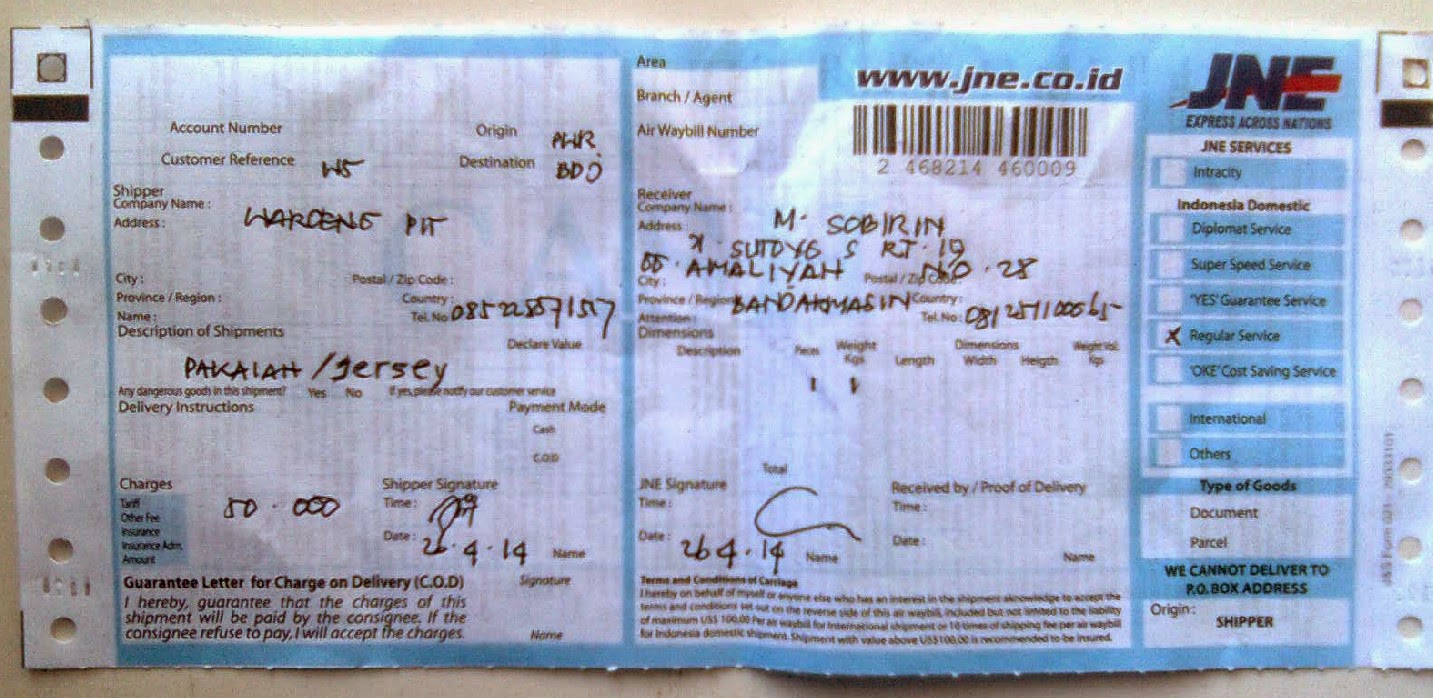 Account Number
Origin PWR
Customer Reference W5
Destination BDJ
Shipper
Company Name :
Address : PIT
City : Postal / Zip Code :
Province / Region : Country :
Name : Tel. No
Description of Shipments
Declare Value
PAKAIAN / Jersey
Any dangerous goods in this shipment? Yes No If yes, please notify our customer service
Delivery Instructions Payment Mode
Cash
C.O.D
Charges
Tariff
Other Fee
Insurance
Insurance Adm.
Amount
50.000
Shipper Signature
Time :
Date : 26.4.14 Name
Guarantee Letter for Charge on Delivery (C.O.D) Signature
I hereby, guarantee that the charges of this
shipment will be paid by the consignee. If the
consignee refuse to pay, I will accept the charges. Name
Area
Branch / Agent
Air Waybill Number
www.jne.co.id
2 468214 460009
Receiver
Company Name :
Address M. SOBIRIN
RT. 19
AMALIYAH NO. 28
City : Postal / Zip Code
Province / Region Country :
Attention : Tel. No :
Dimensions
Description Pieces Weight Kgs Dimensions Length Width Heigth Weight Vol. Kgs
1 1
Total
JNE Signature
Time :
Date : 26 4.14 Name
Received by / Proof of Delivery
Time :
Date :
Name
Terms and Conditions of Carriage
I hereby on behalf of myself or anyone else who has an interest in the shipment aknowledge to accept the
terms and conditions set out on the reverse side of this air waybill, included but not limited to the liability
of maximum US$ 100,00 Per air waybill for International shipment or 10 times of shipping fee per air waybill
for Indonesia domestic shipment. Shipment with value above US$100,00 is recommended to be insured.
JNE
EXPRESS ACROSS NATIONS
JNE SERVICES
Intracity
Indonesia Domestic
Diplomat Service
Super Speed Service
'YES' Guarantee Service
X Regular Service
'OKE' Cost Saving Service
International
Others
Type of Goods
Document
Parcel
WE CANNOT DELIVER TO
P.O. BOX ADDRESS
Origin :
SHIPPER